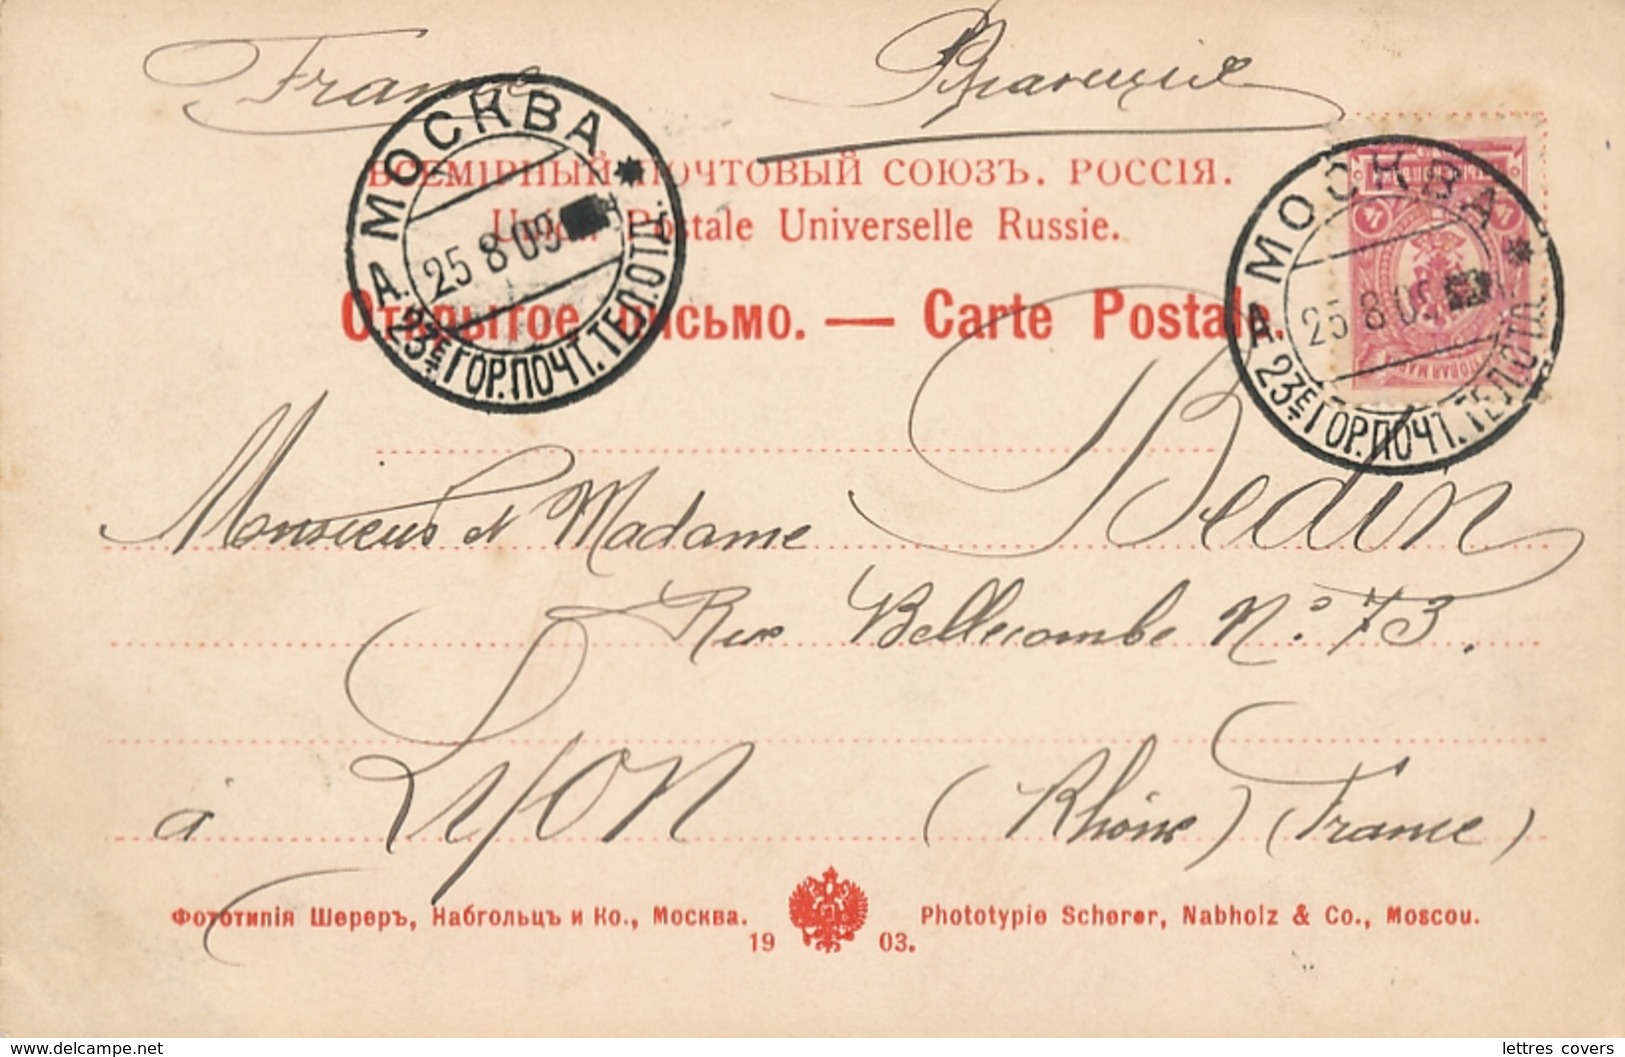 France Франція
ВСЕМІРНЫЙ ПОЧТОВЫЙ СОЮЗЪ. РОССІЯ.
Union Postale Universelle Russie.
Открытое письмо. — Carte Postale.
МОСКВА
25 8 09
А. 23Е ГОР.ПОЧТ.ТЕЛ.ОТД.
МОСКВА
25 8 09
А 23Е ГОР.ПОЧТ.ТЕЛ.ОТД.
4 4
Monsieur et Madame Bedin
Rue Bellecombe No. 73.
à Lyon (Rhône) (France)
Фототипія Шереръ, Набгольцъ и Ко., Москва. Phototypie Scherer, Nabholz & Co., Moscou.
19 03.
https://www.delcampe.net lettres covers